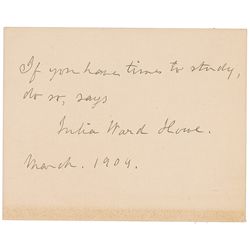 If you have time to study,
do so, says
Julia Ward Howe.
March. 1909.